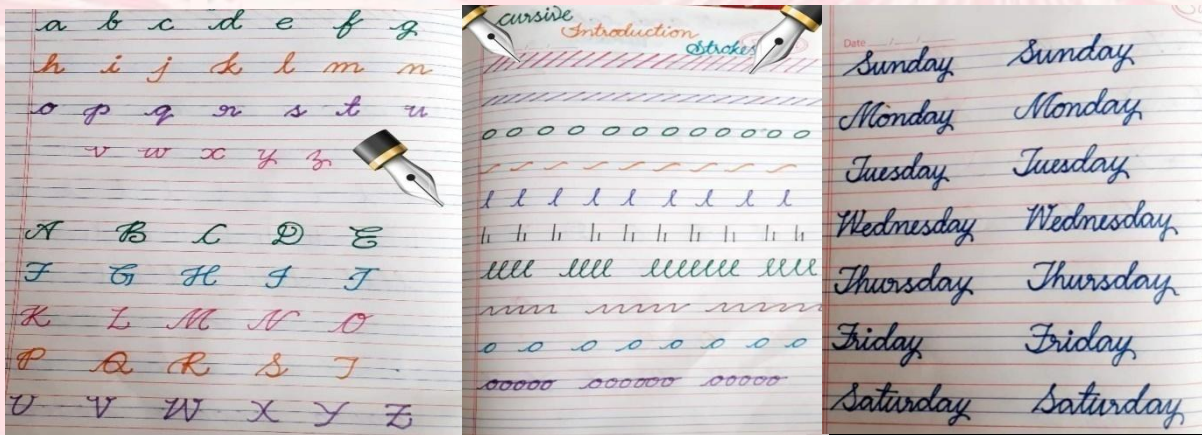 a b c d e f g
h i j k l m n
o p q r s t u
v w x y z
A B C D E
F G H I J
K L M N O
P Q R S T
U V W X Y Z
cursive
Introduction
Strokes
Date
Sunday Sunday
Monday Monday
Tuesday Tuesday
Wednesday Wednesday
Thursday Thursday
Friday Friday
Saturday Saturday